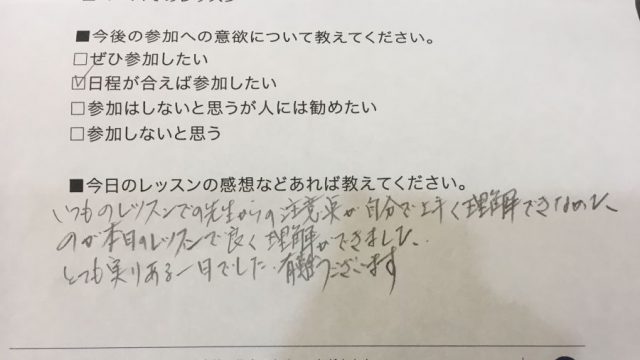 ■今後の参加への意欲について教えてください。
□ぜひ参加したい
☑日程が合えば参加したい
□参加はしないと思うが人には勧めたい
□参加しないと思う
■今日のレッスンの感想などあれば教えてください。
いつものレッスンでの先生からの注意点が自分で上手く理解できなかった
のが本日のレッスンで良く理解ができました。
とても実りある一日でした 有難うございます